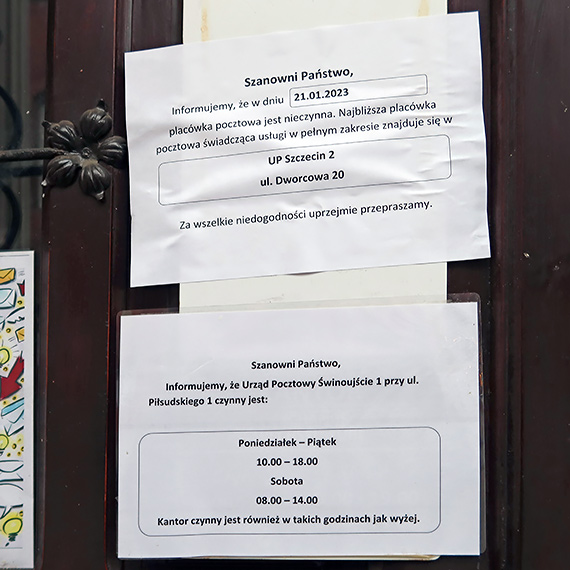 Szanowni Państwo,
Informujemy, że w dniu 21.01.2023
placówka pocztowa jest nieczynna. Najbliższa placówka
pocztowa świadcząca usługi w pełnym zakresie znajduje się w
UP Szczecin 2
ul. Dworcowa 20
Za wszelkie niedogodności uprzejmie przepraszamy.
Szanowni Państwo,
Informujemy, że Urząd Pocztowy Świnoujście 1 przy ul.
Piłsudskiego 1 czynny jest:
Poniedziałek – Piątek
10.00 – 18.00
Sobota
08.00 – 14.00
Kantor czynny jest również w takich godzinach jak wyżej.